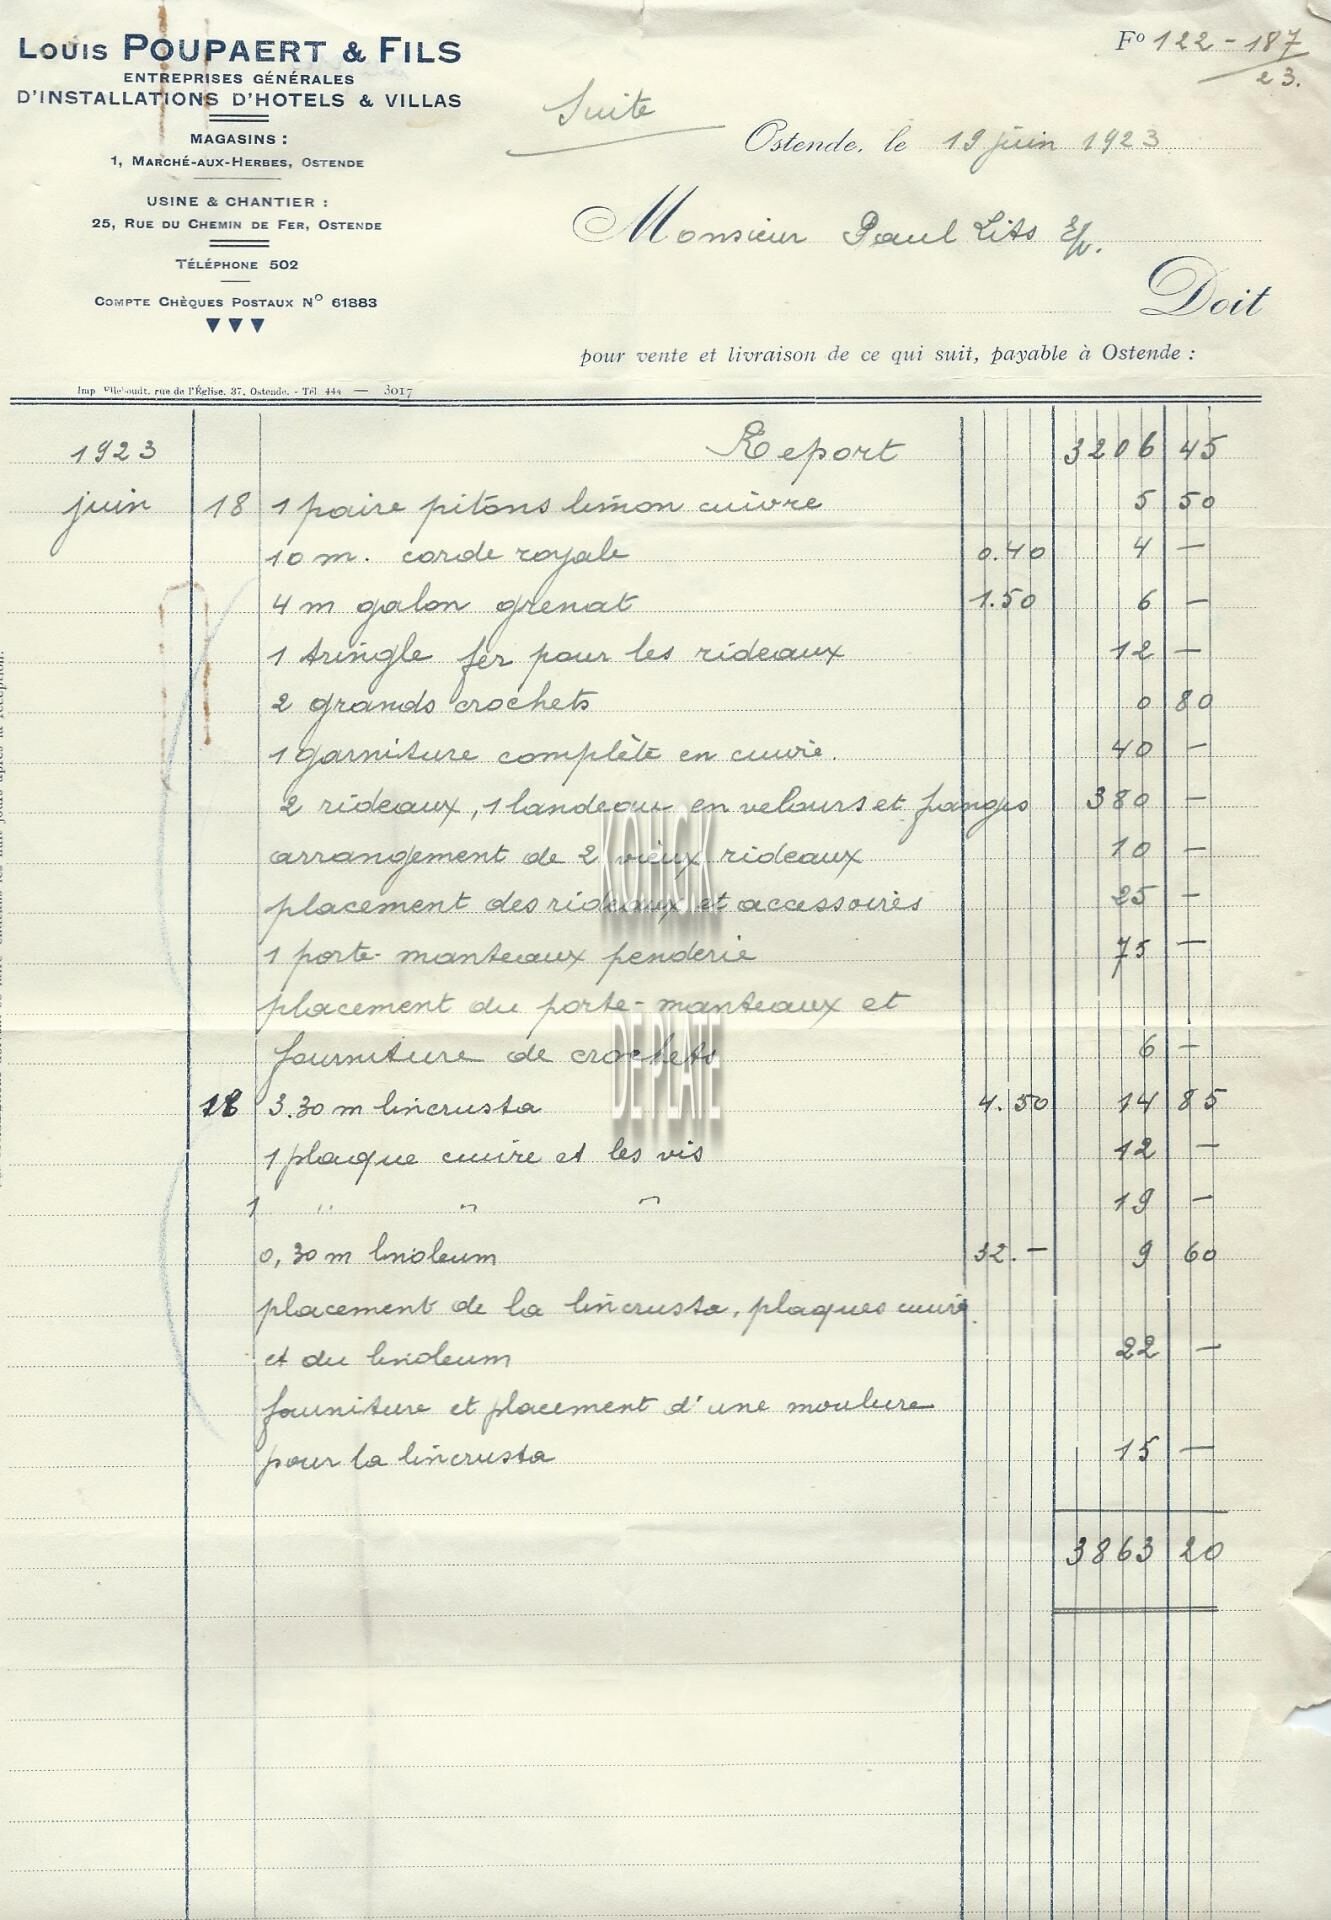 LOUIS POUPAERT & FILS
ENTREPRISES GÉNÉRALES
D'INSTALLATIONS D'HOTELS & VILLAS
MAGASINS :
1, MARCHÉ-AUX-HERBES, OSTENDE
USINE & CHANTIER :
25, RUE DU CHEMIN DE FER, OSTENDE
TÉLÉPHONE 502
COMPTE CHÈQUES POSTAUX No 61883
Fo 122 - 187
23.
Suite
Ostende, le 19 juin 1923
Monsieur Paul Lits
Doit
pour vente et livraison de ce qui suit, payable à Ostende :
Imp. rue de l'Église, 37, Ostende. - Tél. 444 — 3017
1923 Report 3206 45
juin 18 1 paire pitons limon cuivre 5 50
10 m. corde royale 0.40 4 —
4 m galon grenat 1.50 6 —
1 tringle fer pour les rideaux 12 —
2 grands crochets 0 80
1 garniture complète en cuivre. 40 —
2 rideaux, 1 landeau en velours et franges 380 —
arrangement de 2 vieux rideaux 10 —
placement des rideaux et accessoires 25 —
1 porte-manteaux penderie 75 —
placement du porte-manteaux et
fourniture de crochets 6 —
18 3.30 m lincrusta 4.50 14 85
1 plaque cuivre et les vis 12 —
1 " " " 19 —
0,30 m linoleum 32.— 9 60
placement de la lincrusta, plaques cuivre
et du linoleum 22 —
fourniture et placement d'une moulure
pour la lincrusta 15 —
3863 20
KOHCK
DE PLATE